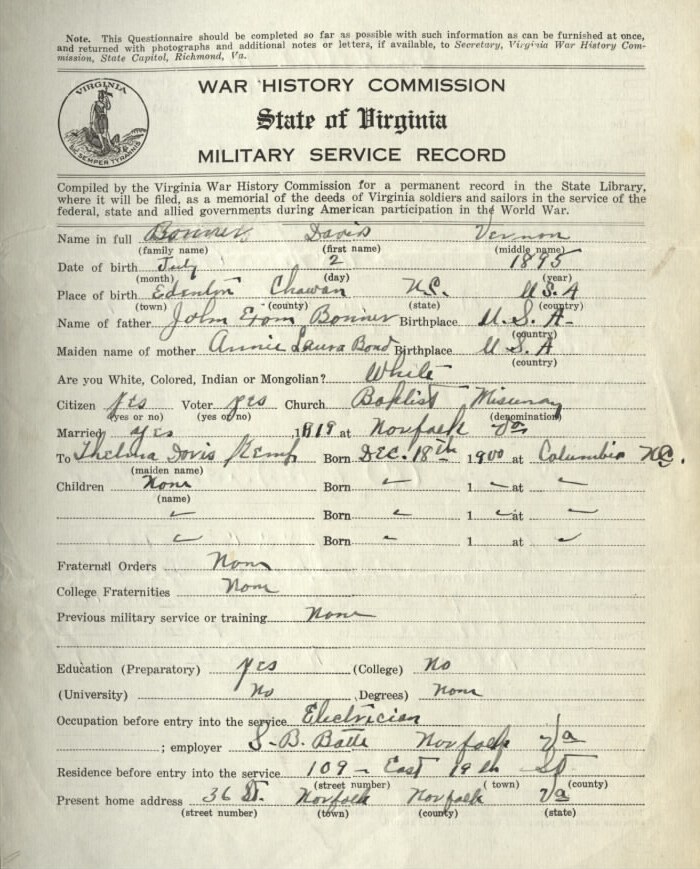 Note. This Questionnaire should be completed so far as possible with such information as can be furnished at once,
and returned with photographs and additional notes or letters, if available, to Secretary, Virginia War History Com-
mission, State Capitol, Richmond, Va.
VIRGINIA
SIC SEMPER TYRANNIS
WAR HISTORY COMMISSION
State of Virginia
MILITARY SERVICE RECORD
Compiled by the Virginia War History Commission for a permanent record in the State Library,
where it will be filed, as a memorial of the deeds of Virginia soldiers and sailors in the service of the
federal, state and allied governments during American participation in the World War.
Name in full Bonner David Vernon
(family name) (first name) (middle name)
Date of birth July 2 1895
(month) (day) (year)
Place of birth Edenton Chowan N.C. U.S.A
(town) (county) (state) (country)
Name of father John Exom Bonner Birthplace U.S.A-
(country)
Maiden name of mother Annie Laura Bond Birthplace U S A
(country)
Are you White, Colored, Indian or Mongolian? White
Citizen yes Voter yes Church Baptist Missionay
(yes or no) (yes or no) (denomination)
Married yes, 1919 at Norfolk Va
To Thelma Doris Kemp Born DEC. 18th 1900 at Columbia N.C.
(maiden name)
Children None Born 1 at
(name)
Born 1 at
Born 1 at
Fraternal Orders None
College Fraternities None
Previous military service or training None
Education (Preparatory) yes (College) No
(University) No (Degrees) None
Occupation before entry into the service Electrician
; employer S-B. Norfolk Va
Residence before entry into the service 109 - East 19th St
(street number) (town) (county)
Present home address 36 St. Norfolk Norfolk Va
(street number) (town) (county) (state)